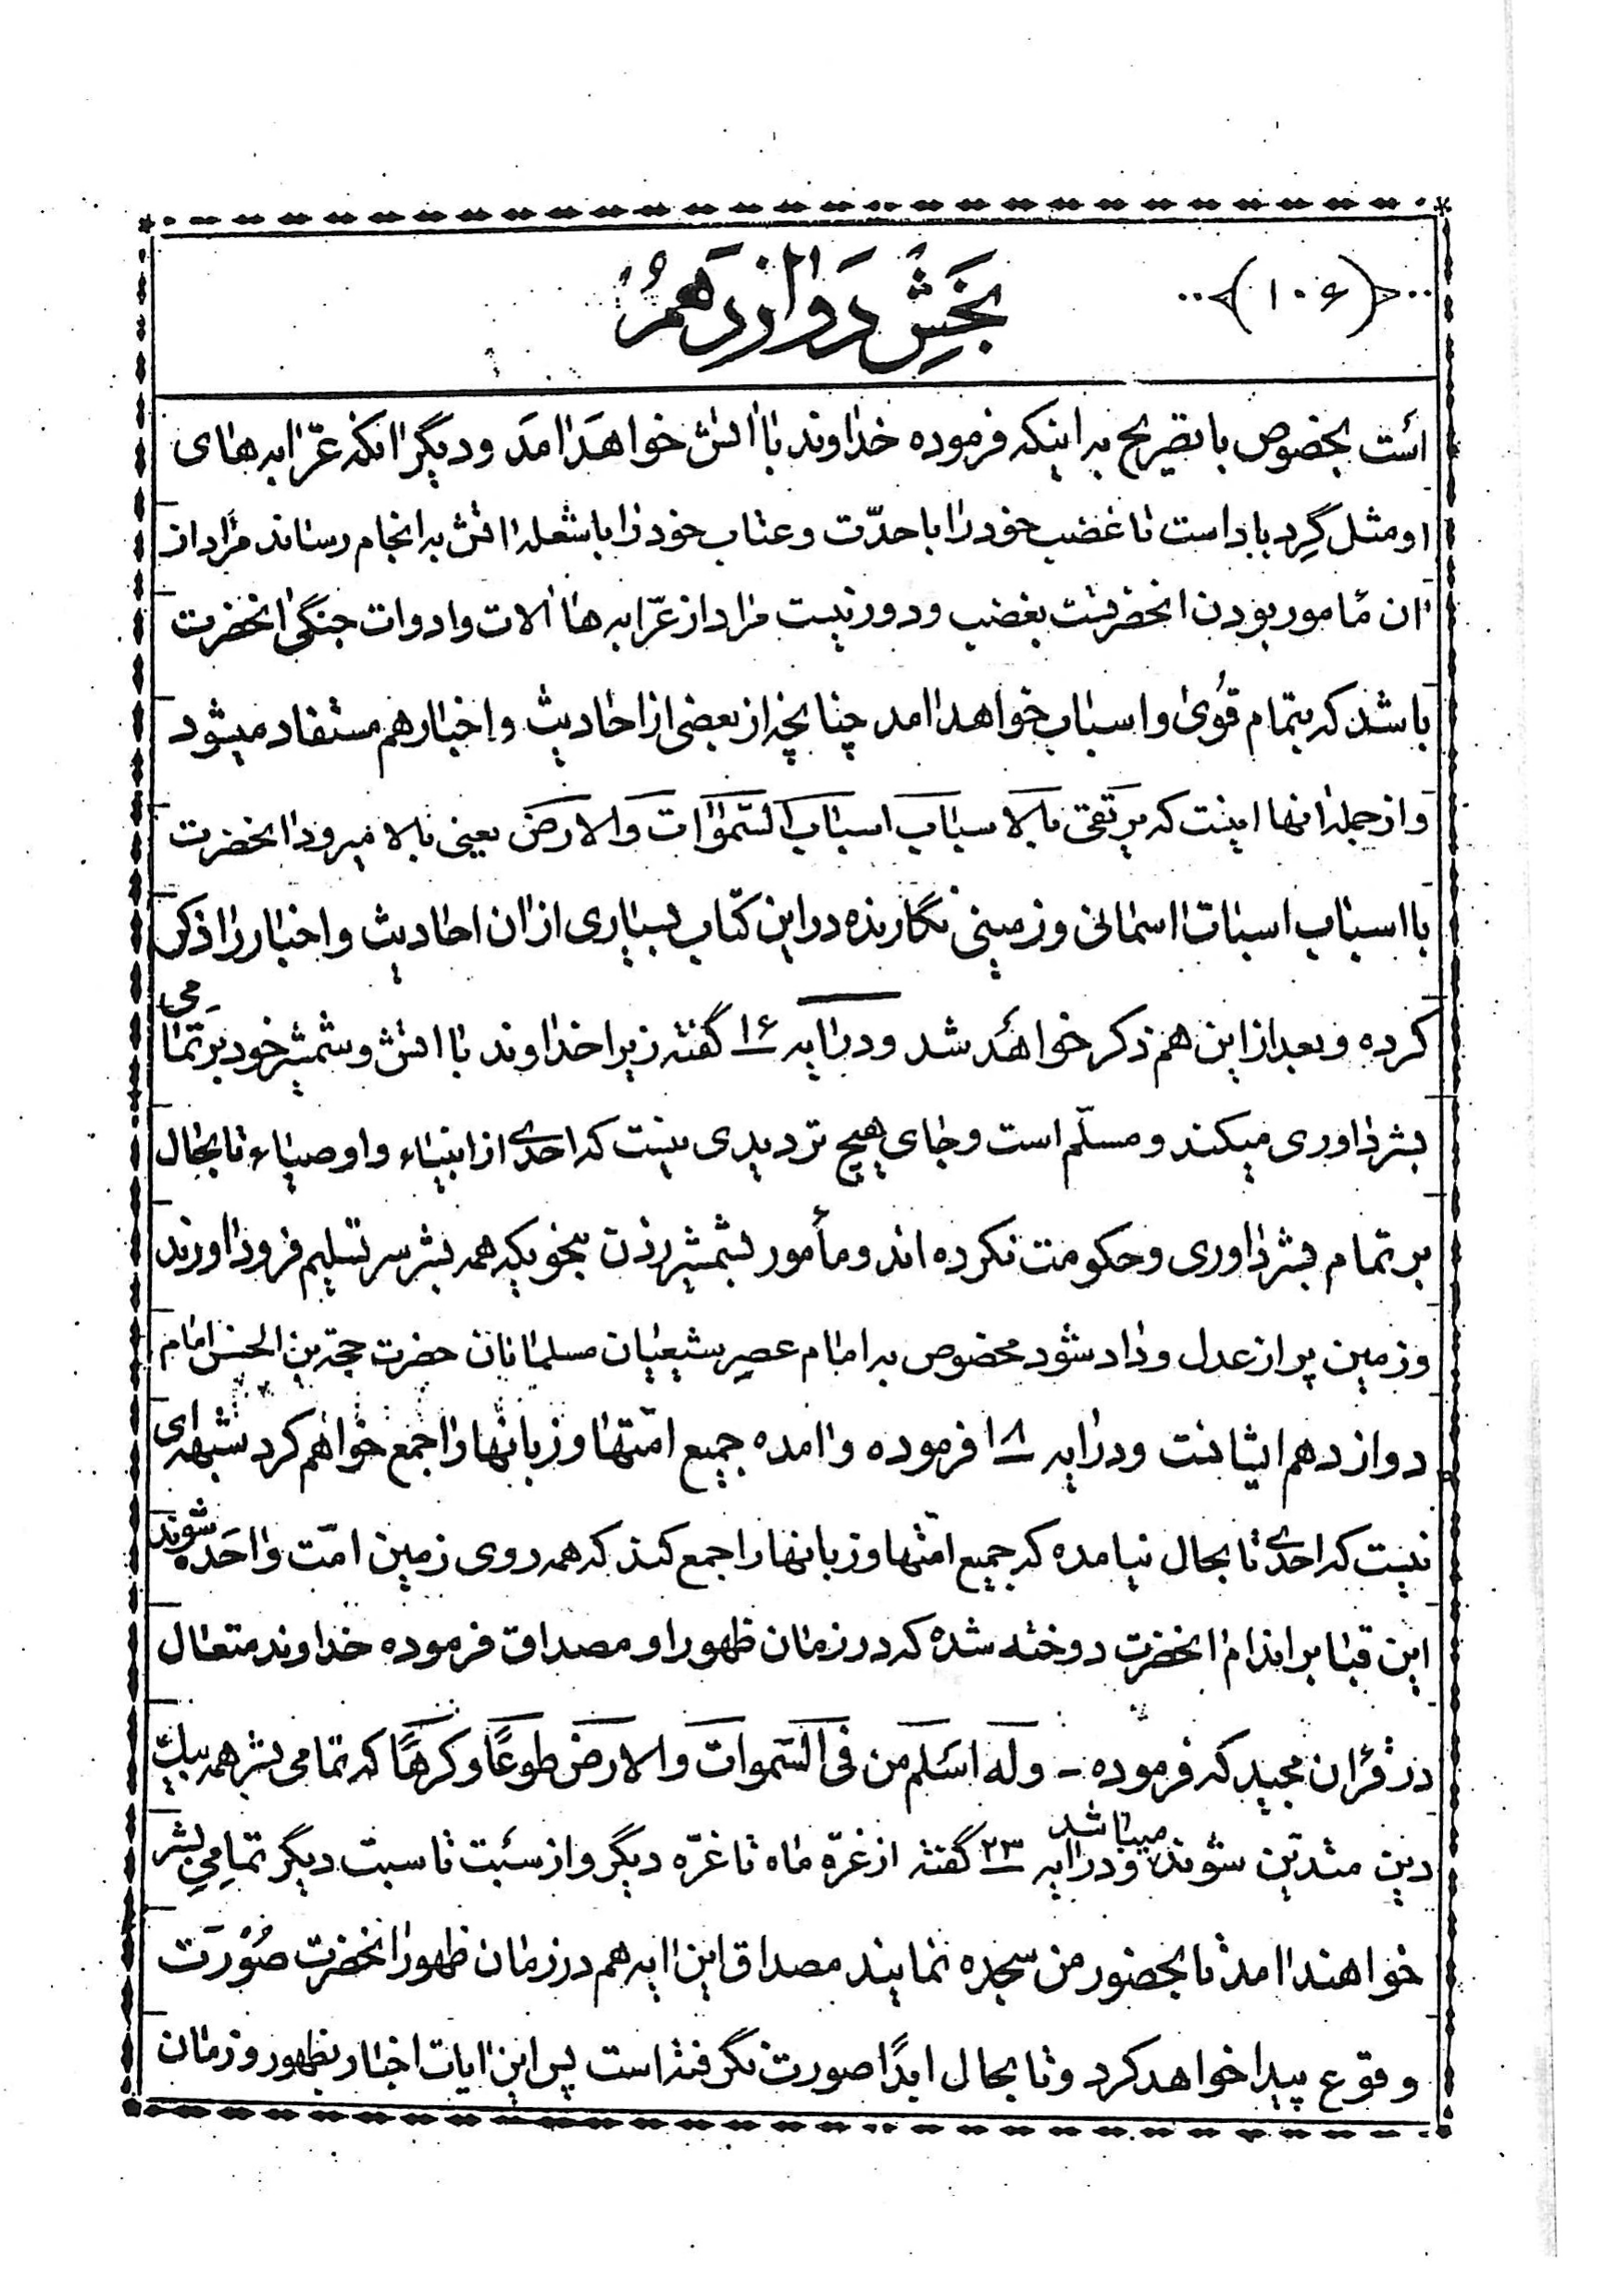 (۱۰۶)
بخش دوازدهم
است بخصوص با تصریح به اینکه فرموده خداوند با اتش خواهد امد و دیگر انکه عرّابه های
او مثل گردباد است تا غضب خود را با حدّت و عتاب خود را با شعله اتش به انجام رساند مراد از
ان مامور بودن انحضرتست بغضب و دور نیست مراد از عرّابه ها الات و ادوات جنگی انحضرت
باشد که بتمام قوی و اسباب خواهد امد چنانچه از بعضی از احادیث و اخبار هم مستفاد میشود
و از جمله انها اینست که یرتقی بالاسباب اسباب السّموات والارض یعنی بالا میرود انحضرت
با اسباب اسبات اسمانی و زمینی نگارنده در این کتاب بسیاری از ان احادیث و اخبار را ذکر
کرده و بعد از این هم ذکر خواهد شد و در ایه ۱۶ گفته زیرا خداوند با اتش و شمشیر خود بر تمامی
بشر داوری میکند و مسلّم است و جای هیچ تردیدی نیست که احدی از انبیاء و اوصیاء تا بحال
بر تمام بشر داوری و حکومت نکرده اند و مأمور بشمشیر زدن بنحویکه همه بشر سر تسلیم فرود اورند
و زمین پر از عدل و داد شود مخصوص به امام عصر شیعیان مسلمانان حضرت حجة بن الحسن امام
دوازدهم ایشانست و در ایه ۱۸ فرموده و امده جمیع امّتها و زبانها را جمع خواهم کرد شبهه ای
نیست که احدی تا بحال نیامده که جمیع امّتها و زبانها را جمع کند که همه روی زمین امّت واحده شوند
این قبا بر اندام انحضرت دوخته شده که در زمان ظهور او مصداق فرموده خداوند متعال
در قران مجید که فرموده - وله اسلم من فی السّموات والارض طوعًا و کرهًا که تمامی بشر همه بیک
دین متدیّن شوند میباشد و در ایه ۲۳ گفته از غرّه ماه تا غرّه دیگر و از سبت تا سبت دیگر تمامی بشر
خواهند امد تا بحضور من سجده نمایند مصداق این ایه هم در زمان ظهور انحضرت صورت
وقوع پیدا خواهد کرد و تا بحال ابدًا صورت نگرفته است پس این ایات اخبار بظهور و زمان